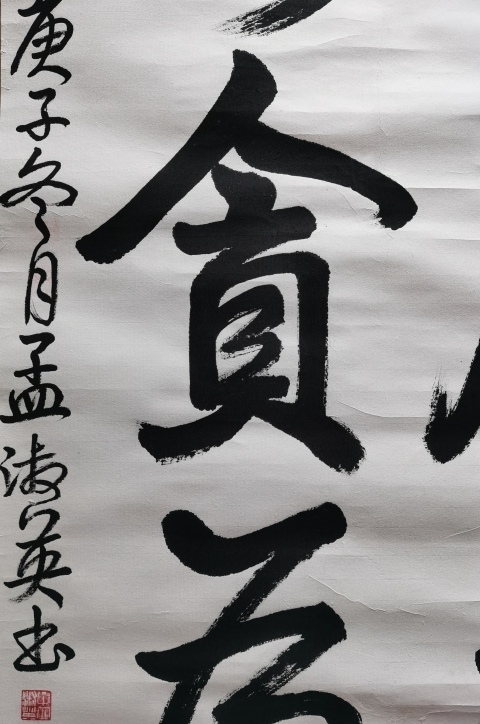 貪
庚子冬月孟淑英书